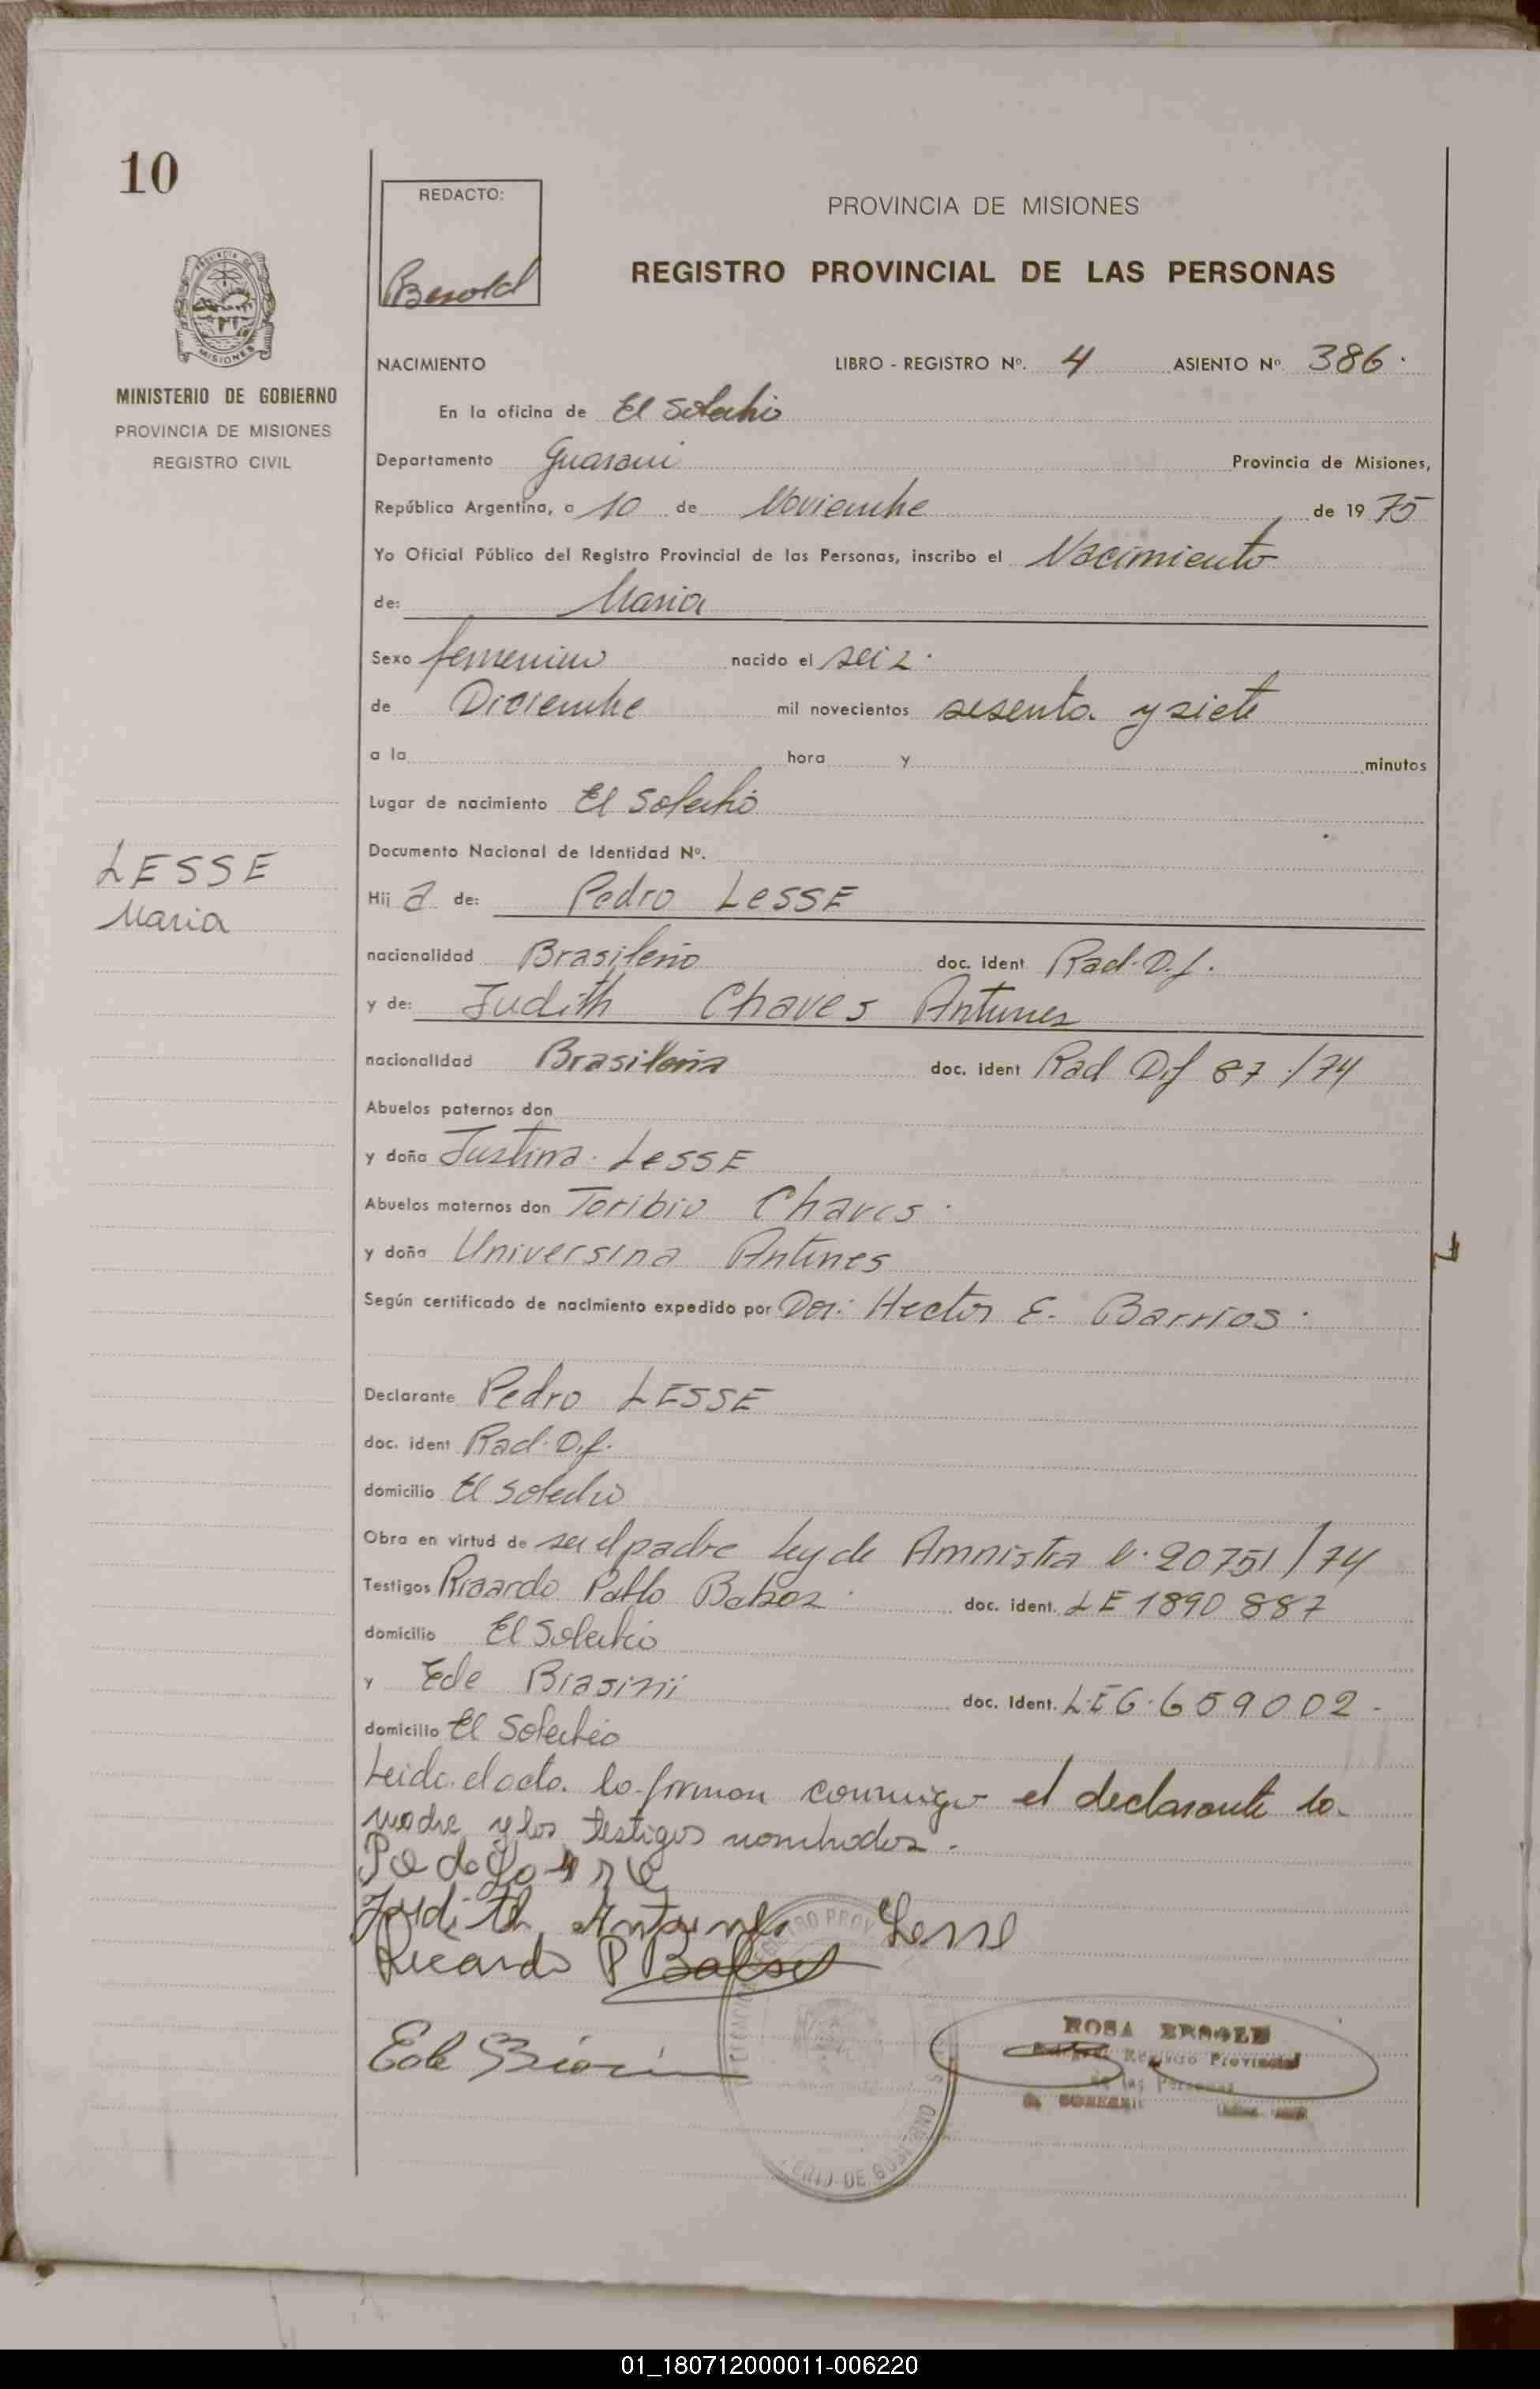 10
REDACTO:
PROVINCIA DE MISIONES
REGISTRO PROVINCIAL DE LAS PERSONAS
MINISTERIO DE GOBIERNO
PROVINCIA DE MISIONES
REGISTRO CIVIL
NACIMIENTO LIBRO - REGISTRO Nº. 4 ASIENTO Nº 386.
En la oficina de El Soberbio
Departamento Guarani Provincia de Misiones,
República Argentina, a 10 de Noviembre de 1975
Yo Oficial Público del Registro Provincial de las Personas, inscribo el Nacimiento
de: Maria
Sexo femenino nacido el seiz.
de Diciembre mil novecientos sesenta y siete
a la hora y minutos
Lugar de nacimiento El Soberbio
Documento Nacional de Identidad Nº.
LESSE
Maria
Hij a de: Pedro LESSE
nacionalidad Brasileño doc. ident Rad. D.f.
y de: Judith Chaves Antunes
nacionalidad Brasileña doc. ident Rad D.f 87 /74
Abuelos paternos don
y doña Justina LESSE
Abuelos maternos don Toribio Chaves.
y doña Universina Antunes
Según certificado de nacimiento expedido por Dor: Hector E. Barrios.
Declarante Pedro LESSE
doc. ident Rad. D.f.
domicilio El Soberbio
Obra en virtud de ser el padre Ley de Amnistia N. 20751/74
Testigos Ricardo Pablo doc. ident. LE 1890 887
domicilio El Soberbio
y Ede Biasini doc. ident. L.E 6.659002.
domicilio El Soberbio
Leida el acta. lo firman conmigo el declarante la
madre y los testigos nombrados.
Judith Antunes Lesse
Ricardo P
Ede Biasini
ROSA
Registro Provincial
de las Personas
01_180712000011-006220